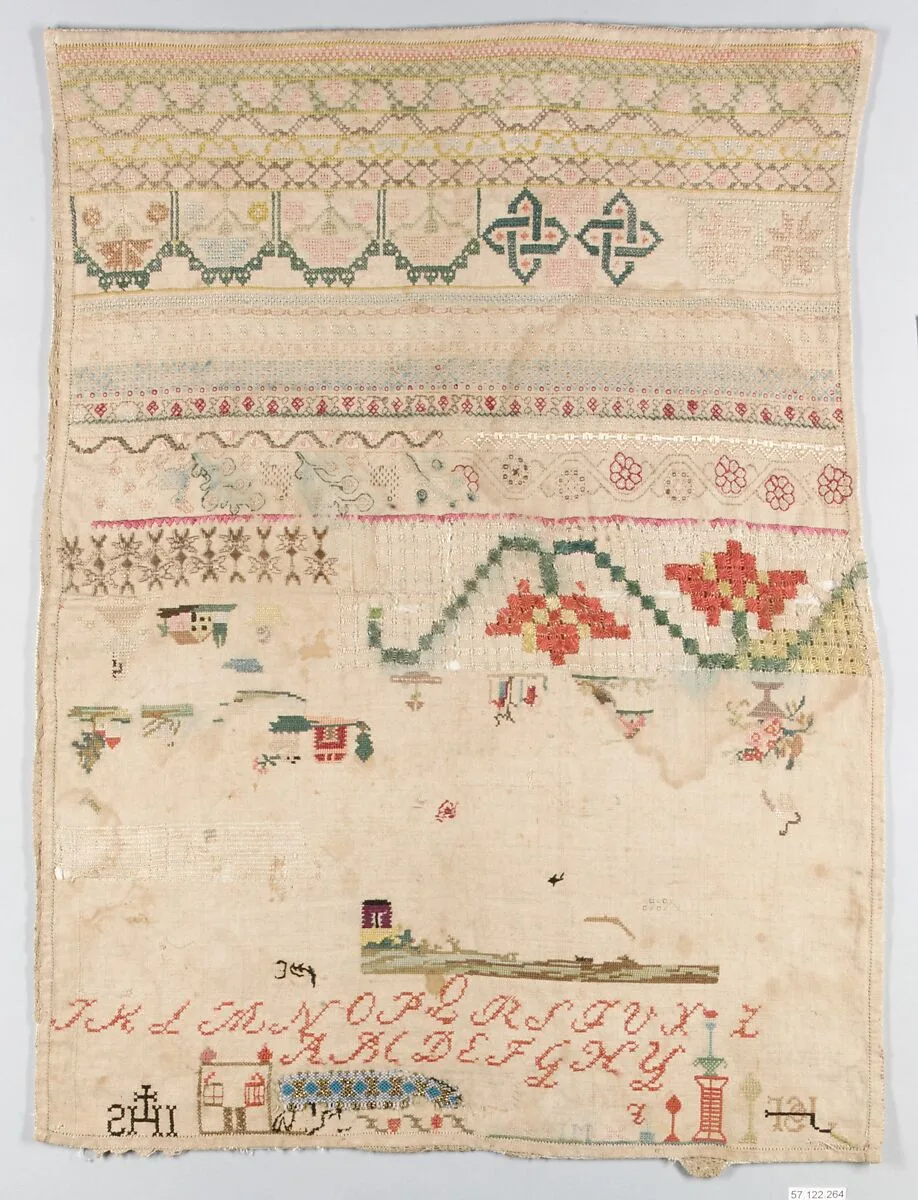 I K L M N O P Q R S T V X Z
A B C D E F G H Y
IHS
57.122.264